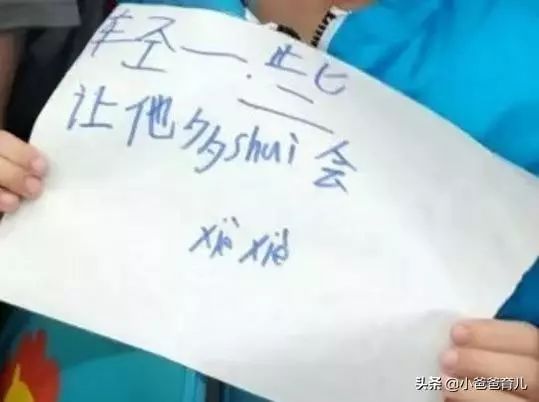 轻一些
让他多shuì会
xiè xiè
头条 @小爸爸育儿